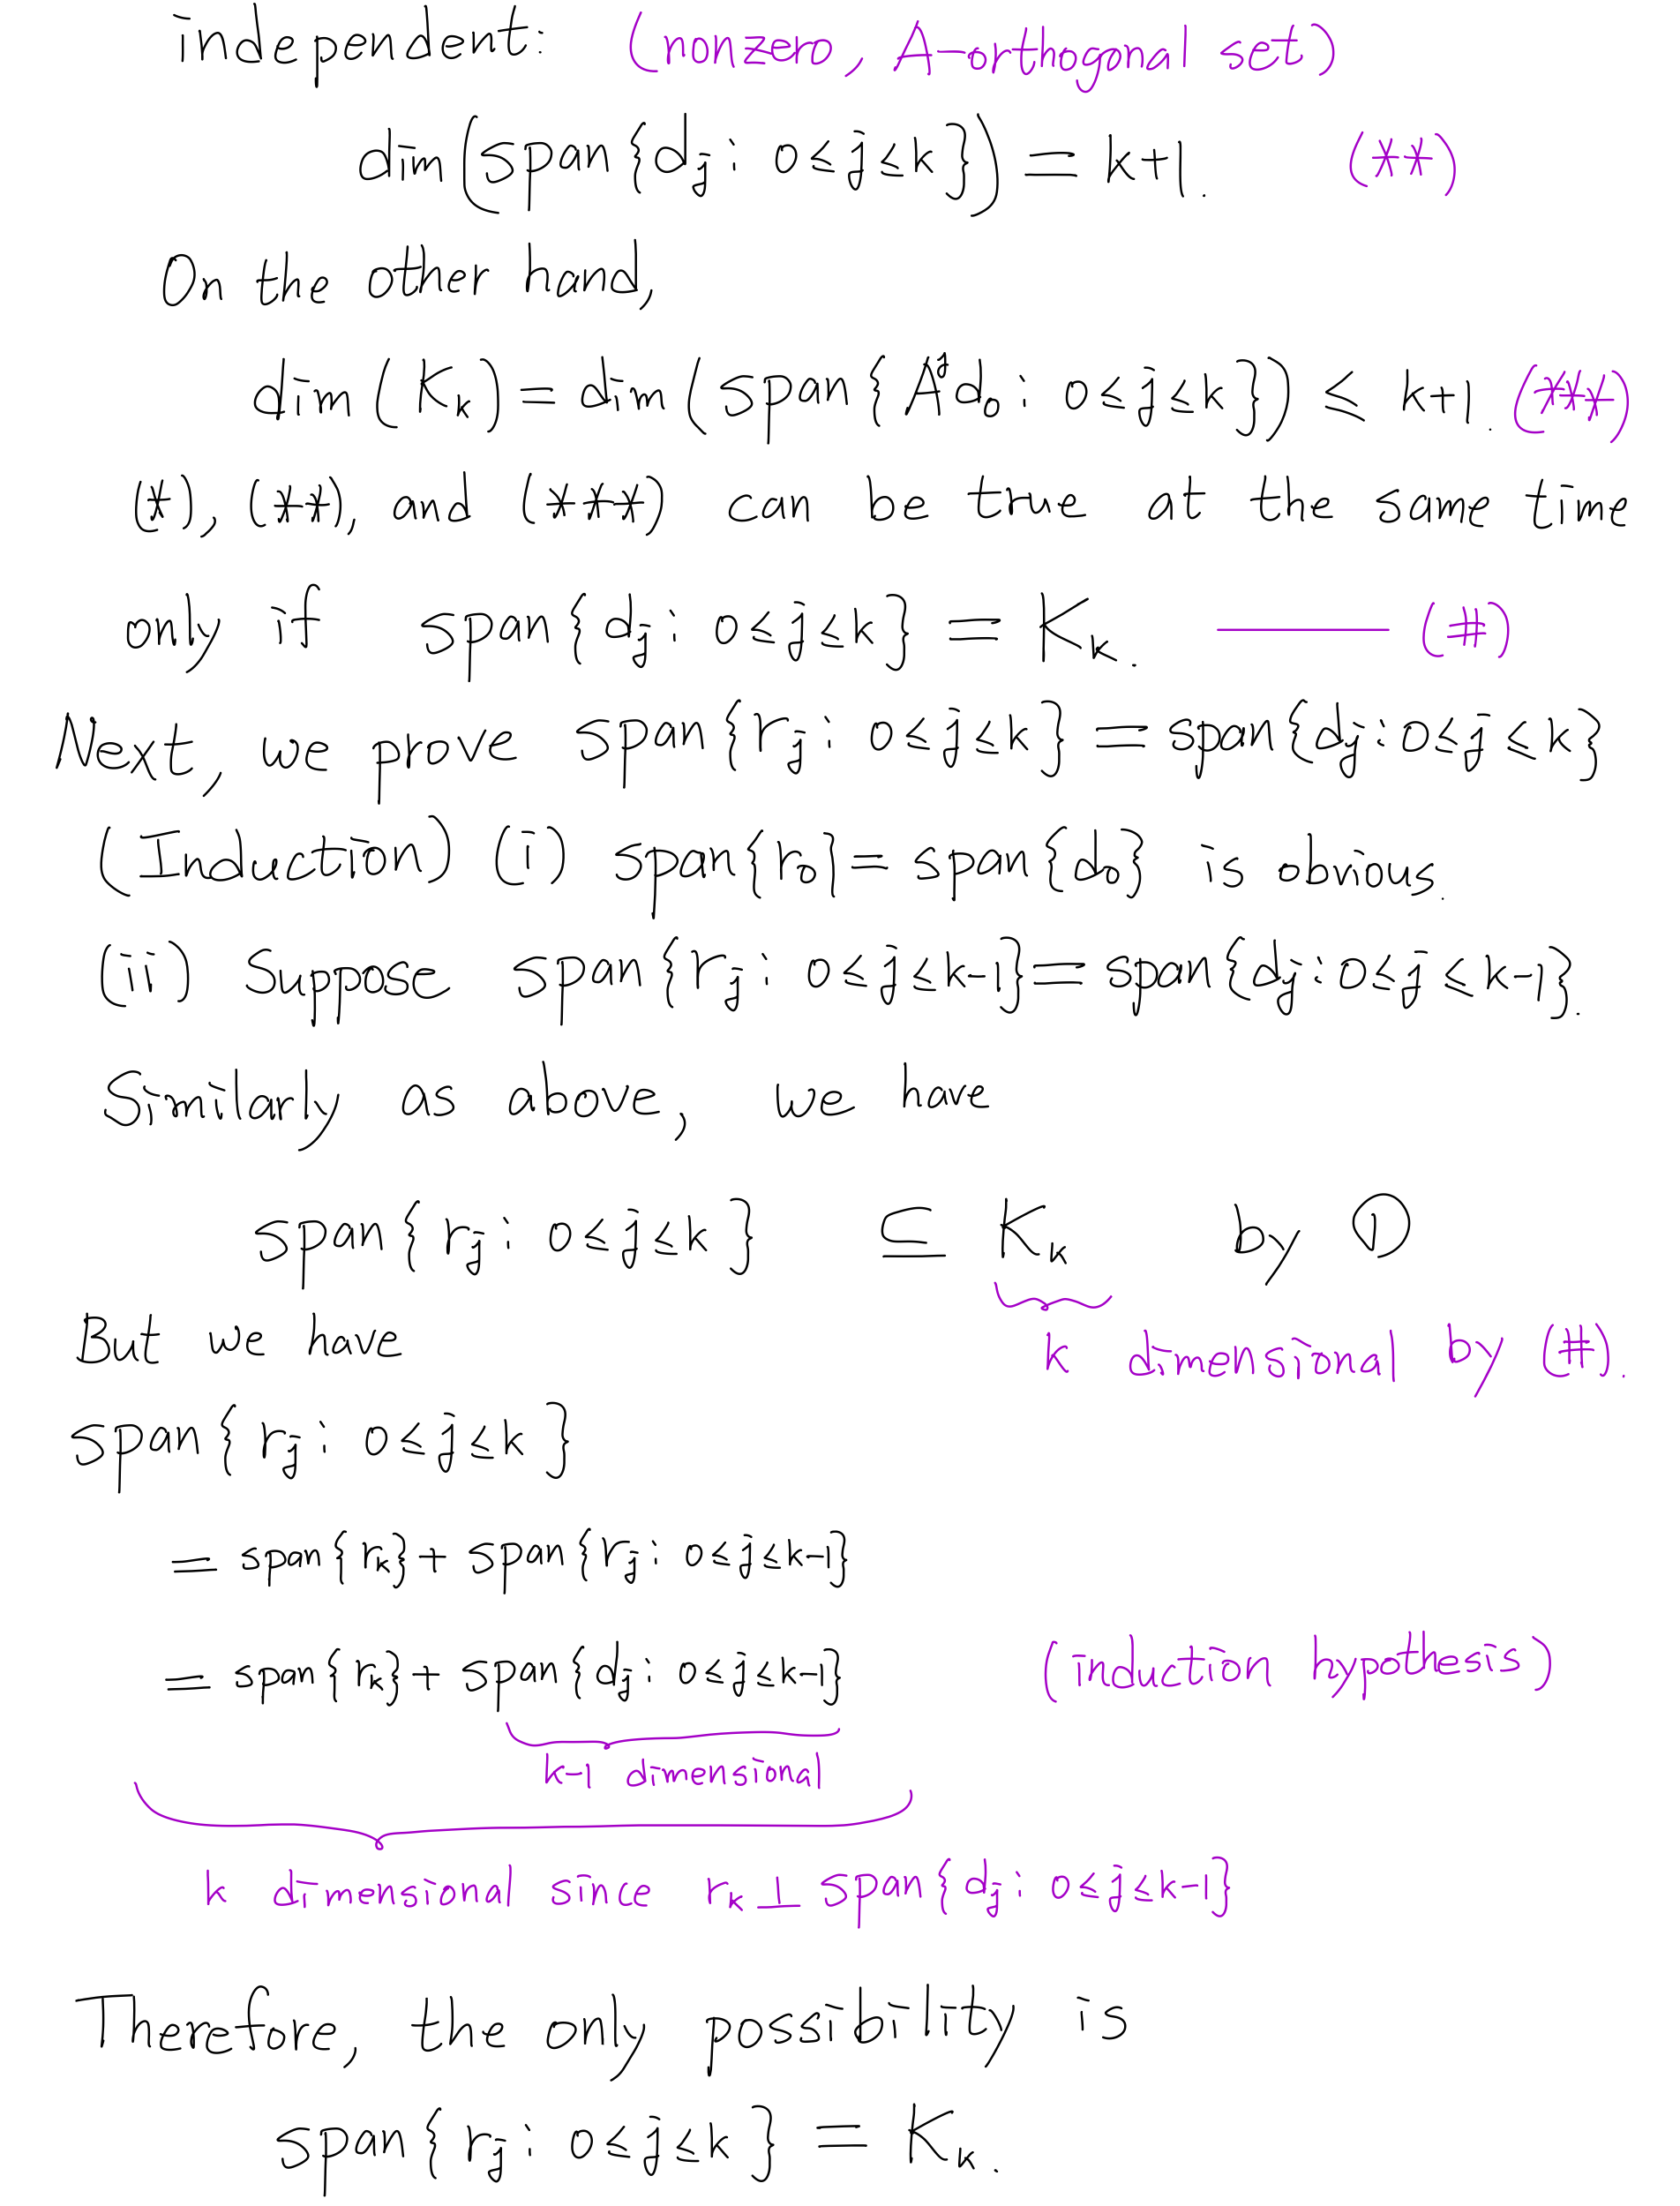 independent: (nonzero, A-orthogonal set)
dim(span{dj : 0≤j≤k}) = k+1. (**)
On the other hand,
dim(Kk) = dim(span{A^j d0 : 0≤j≤k}) ≤ k+1. (***)
(*), (**), and (***) can be true at the same time
only if span{dj : 0≤j≤k} = Kk. —— (#)
Next, we prove span{rj : 0≤j≤k} = span{dj : 0≤j≤k}
(Induction) (i) span{r0} = span{d0} is obvious.
(ii) Suppose span{rj : 0≤j≤k-1} = span{dj : 0≤j≤k-1}.
Similarly as above, we have
span{rj : 0≤j≤k} ⊆ Kk by ①
But we have
k dimensional by (#).
span{rj : 0≤j≤k}
= span{rk} + span{rj : 0≤j≤k-1}
= span{rk} + span{dj : 0≤j≤k-1} (induction hypothesis)
k-1 dimensional
k dimensional since rk ⊥ span{dj : 0≤j≤k-1}
Therefore, the only possibility is
span{rj : 0≤j≤k} = Kk.